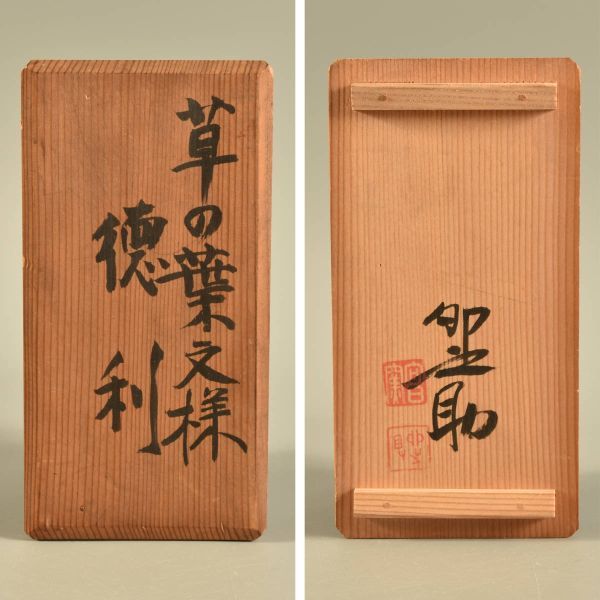 草の葉文様
徳利
卯之助